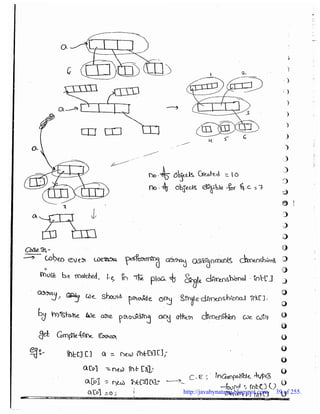 a
6
1 2
a → →
3
4 5 6
a
no. of objects Created = 10
no. of objects eligible for GC = 7
7
a
Case 3:-
→ when ever we are performing array assignments dimensions
must be matched. i.e in the place of Single dimensional int[]
array, we should provide only Single dimensional int[].
by mistake we are providing any other dimension we will
get Compiletime Error.
Eg:- int[][] a = new int[3][];
a[0] = new int[3];
a[0] = new int[3][2]; → C.E : Incompatible types
found : int[][]
a[0] = 0;
http://javabynataraj.blogspot.com 39 of 255.